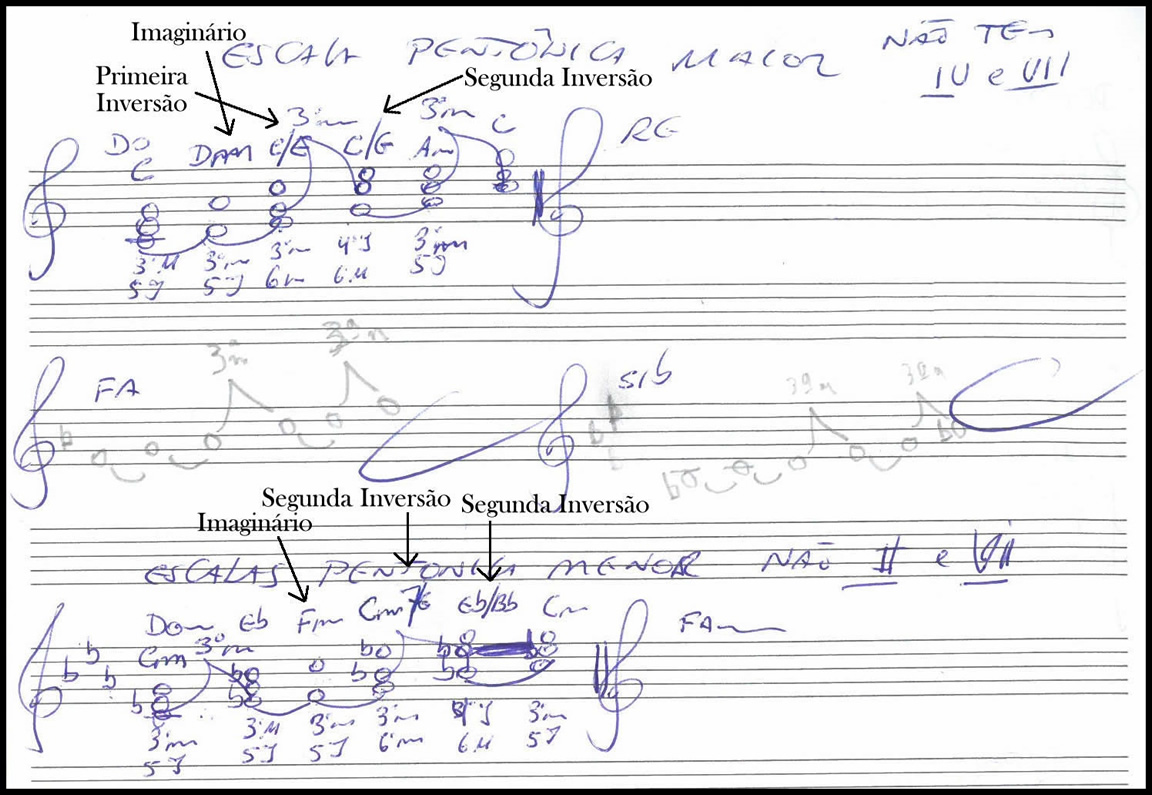 Imaginário
ESCALA PENTÔNICA MAIOR NÃO TEm
IV e VII
Primeira
Inversão
Segunda Inversão
3ªm 3ªm
DO RE
C Dm C/E C/G Am C
3ªM 3ªm 3ªm 4ªJ 3ªm
5J 5J 6m 6M 5J
3ªm 3ªm
FA SIb
3ªm 3ªm
Segunda Inversão Segunda Inversão
Imaginário
ESCALAS PENTONICA MENOR NÃO II e VII
Dom Eb Fm Eb/Bb Cm FAm
Cm 3ªm
3ªm 3ªM 3ªm 3ªm 4ªJ 3ªm
5J 5J 5J 6m 6M 5J